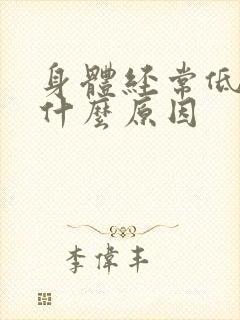 身體經常低
什麼原因
李偉丰